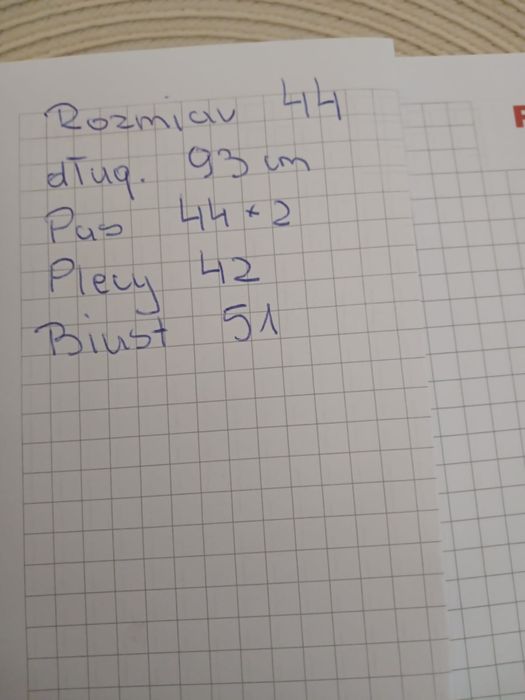 Rozmiar 44
dług. 93 cm
Pas 44 * 2
Plecy 42
Biust 51